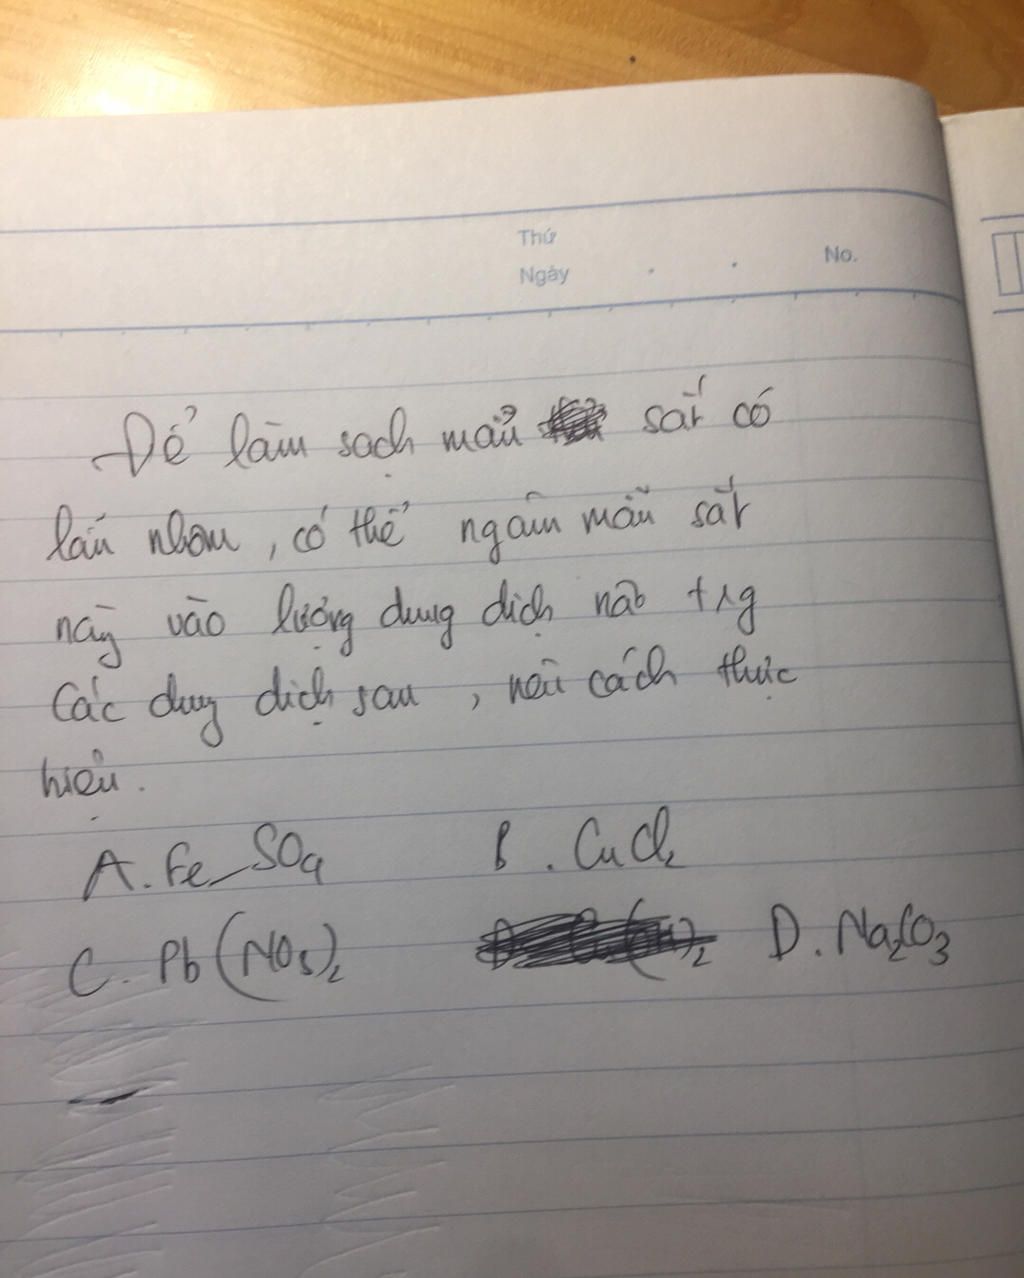 Thứ
Ngày . . No.
Để làm sạch mẩu sắt có
lẫn nhôm, có thể ngâm mẫu sắt
này vào lượng dung dịch nào trg
Các dung dịch sau, nêu cách thực
hiện.
A. FeSO4 B. CuCl2
C. Pb(NO3)2 D. Na2CO3